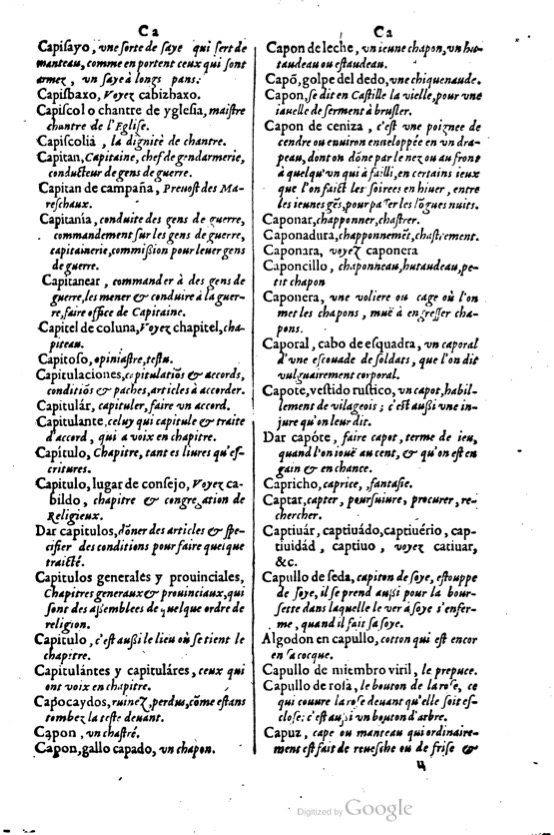 Ca
Capisayo, vne sorte de saye qui sert de
manteau, comme en portent ceux qui sont
armez, vn saye à longs pans.
Capisbaxo, Voyez cabizbaxo.
Capiscol o chantre de yglesia, maistre
chantre de l'Eglise.
Capiscolia, la dignité de chantre.
Capitan, Capitaine, chef de gendarmerie,
conducteur de gens de guerre.
Capitan de campaña, Preuost des Ma-
reschaux.
Capitanía, conduite des gens de guerre,
commandement sur les gens de guerre,
capitainerie, commißion pour leuer gens
de guerre.
Capitanear, commander à des gens de
guerre, les mener & conduire à la guer-
re, faire office de Capitaine.
Capitel de coluna, Voyez chapitel, cha-
piteau.
Capitoso, opiniastre, testu.
Capitulaciones, capitulatiōs & accords,
conditiōs & paches, articles à accorder.
Capitulár, capituler, faire vn accord.
Capitulante, celuy qui capitule & traite
d'accord, qui a voix en chapitre.
Capítulo, Chapitre, tant es liures qu'es-
critures.
Capitulo, lugar de consejo, Voyez ca-
bildo, chapitre & congregation de
Religieux.
Dar capitulos, dōner des articles & spe-
cifier des conditions pour faire quelque
traicté.
Capitulos generales y prouinciales,
Chapitres generaux & prouinciaux, qui
sont des aßemblees de quelque ordre de
religion.
Capitulo, c'est außi le lieu où se tient le
chapitre.
Capitulántes y capituláres, ceux qui
ont voix en chapitre.
Capocaydos, ruinez, perdus, cōme estans
tombez la teste deuant.
Capon, vn chastré.
Capon, gallo capado, vn chapon.
Ca
Capon de leche, vn ieune chapon, vn hu-
taudeau ou estaudeau.
Capō, golpe del dedo, vne chiquenaude.
Capon, se dit en Castille la vielle, pour vne
iauelle de serment à brusler.
Capon de ceniza, c'est vne poignee de
cendre ou enuiron enneloppée en vn dra-
peau, dont on dōne par le nez ou au front
à quelqu'vn qui à failli, en certains ieux
que l'on faict les soirees en hiuer, entre
les ieunes gēs, pour passer les lōgues nuits.
Caponar, chapponner, chastrer.
Caponadura, chapponnemēt, chastrement.
Caponara, voyez caponera
Caponcillo, chaponneau, hutaudeau, pe-
tit chapon
Caponera, vne voliere ou cage où l'on
met les chapons, muë à engresser cha-
pons.
Caporal, cabo de esquadra, vn caporal
d'vne escouade de soldats, que l'on dit
vulguairement corporal.
Capote, vestido rustico, vn capot, habil-
lement de vilageois; c'est außi vne in-
jure qu'on leur dit.
Dar capóte, faire capot, terme de ieu,
quand l'on iouë au cent, & qu'on est en
gain & en chance.
Capricho, caprice, fantasie.
Captar, capter, poursuiure, procurer, re-
chercher.
Captiuár, captiuádo, captiuério, cap-
tiuidád, captiuo, voyez catiuar,
&c.
Capullo de seda, capiton de soye, estouppe
de soye, il se prend aussi pour la bour-
sette dans laquelle le ver à soye s'enfer-
me, quand il fait sa soye.
Algodon en capullo, cotton qui est encor
en sa cocque.
Capullo de miembro viril, le prepuce.
Capullo de rosa, le bouton de la rose, ce
qui couure la rose deuant qu'elle soit es-
close: c'est außi vn bouton d'arbre.
Capuz, cape ou manteau qui ordinaire-
ment est fait de reuesche ou de frise &
Digitized by Google